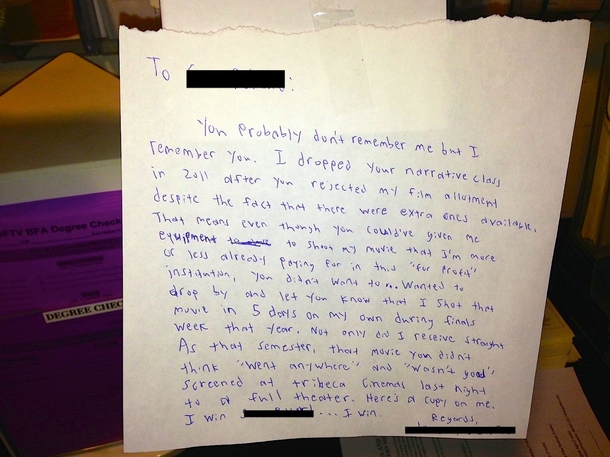 To
You probably don't remember me but I
remember you. I dropped your narrative class
in 2011 after you rejected my film allotment
despite the fact that there were extra ones available.
That means even though you could've given me
equipment to shoot my movie that I'm more
or less already paying for in this "for profit"
institution, you didn't want to. Wanted to
drop by and let you know that I shot that
movie in 5 days on my own during finals
week that year. Not only did I receive straight
As that semester, that movie you didn't
think "went anywhere" and "wasn't good"
screened at tribeca Cinemas last night
to a full theater. Here's a copy on me.
I win ... I win.
Regards,
FTV BFA Degree Check
DEGREE CHEC